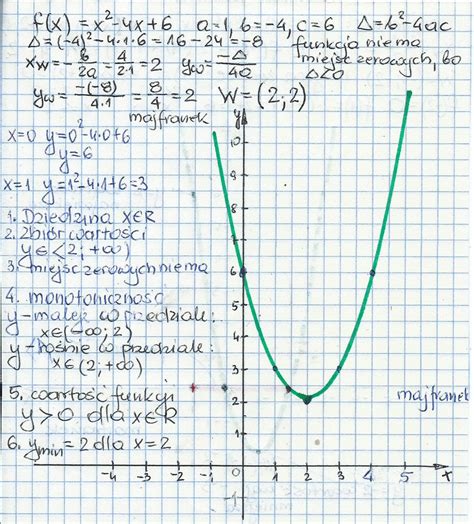 f(x) = x²-4x+6   a=1, b=-4, c=6   Δ=b²-4ac
Δ=(-4)²-4·1·6=16-24=-8   funkcja nie ma
xw=-b/2a=4/2·1=2   yw=-Δ/4a   miejsc zerowych, bo
Δ<0
yw=-(-8)/4·1=8/4=2   W=(2;2)
majfranek
x=0   y=0²-4·0+6
y=6
x=1   y=1²-4·1+6=3
1. Dziedzina x∈R
2. Zbiór wartości
y∈<2;+∞)
3. miejsc zerowych nie ma
4. monotoniczność
y-maleje w przedziale:
x∈(-∞;2)
y-rośnie w przedziale:
x∈(2;+∞)
5. wartość funkcji
y>0 dla x∈R
6. ymin=2 dla x=2
majfranek
y
10
9
8
7
6
5
4
3
2
1
-1
-4 -3 -2 -1 0 1 2 3 4 5 x